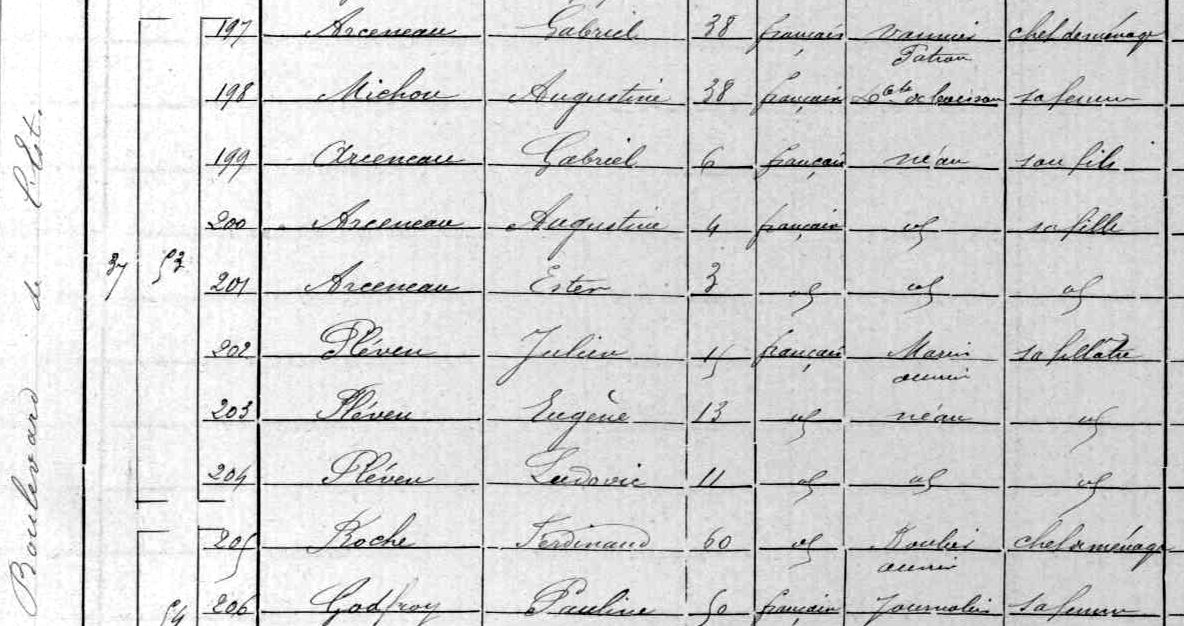 Boulevard de l'Est.
197 Arceneau Gabriel 38 français Vannier chef de ménage
Patron
198 Michou Augustine 38 français Dbte de boisson sa femme
199 Arceneau Gabriel 6 français néan son fils
200 Arceneau Augustine 4 français id sa fille
37 53 201 Arceneau Ester 3 id id id
202 Pléven Julien 15 français Marin
ouvrier
203 Pléven Eugène 13 id néan id
204 Pléven Ludovic 11 id id id
205 Roche Ferdinand 60 id chef de ménage
ouvrier
54 206 Godfroy Pauline 50 français Journalier sa femme